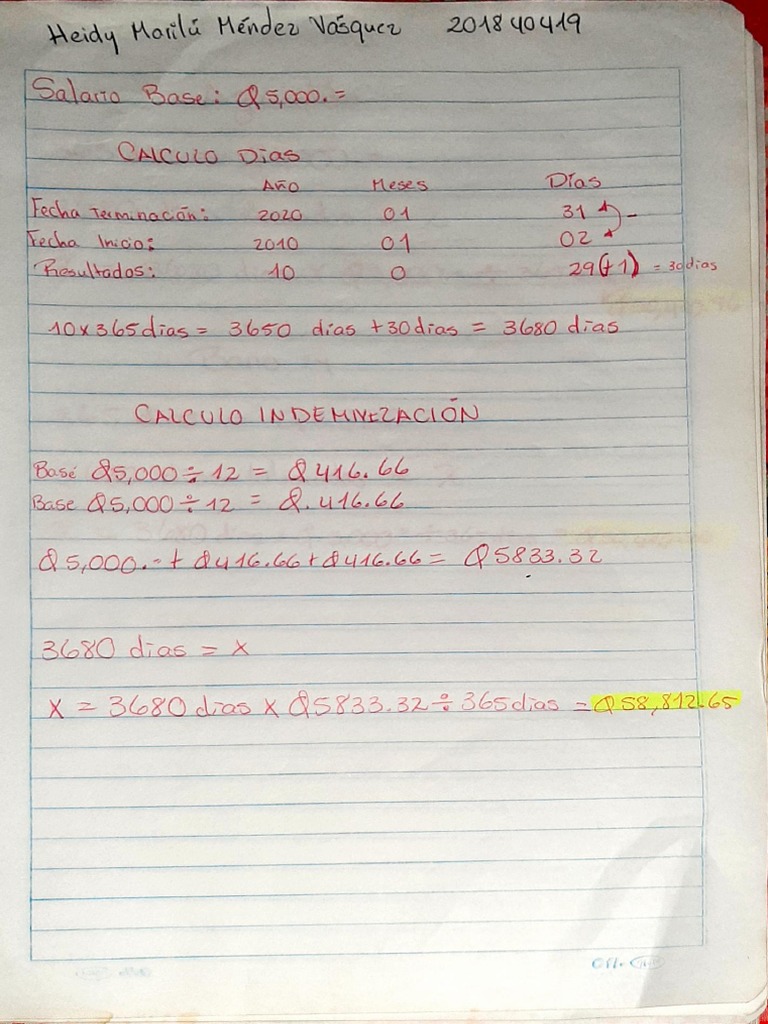 Heidy Marilú Méndez Vásquez 201840419
Salario Base: Q5,000.=
CALCULO DIAS
AÑO Meses Días
Fecha Terminación: 2020 01 31
Fecha Inicio: 2010 01 02
Resultados: 10 0 29(+1) = 30 dias
10 x 365 dias = 3650 dias + 30 dias = 3680 dias
CALCULO INDEMNIZACIÓN
Base Q5,000 ÷ 12 = Q416.66
Base Q5,000 ÷ 12 = Q.416.66
Q5,000.- + Q416.66 + Q416.66 = Q5833.32
3680 dias = x
x = 3680 dias x Q5833.32 ÷ 365 dias = Q58,812.65